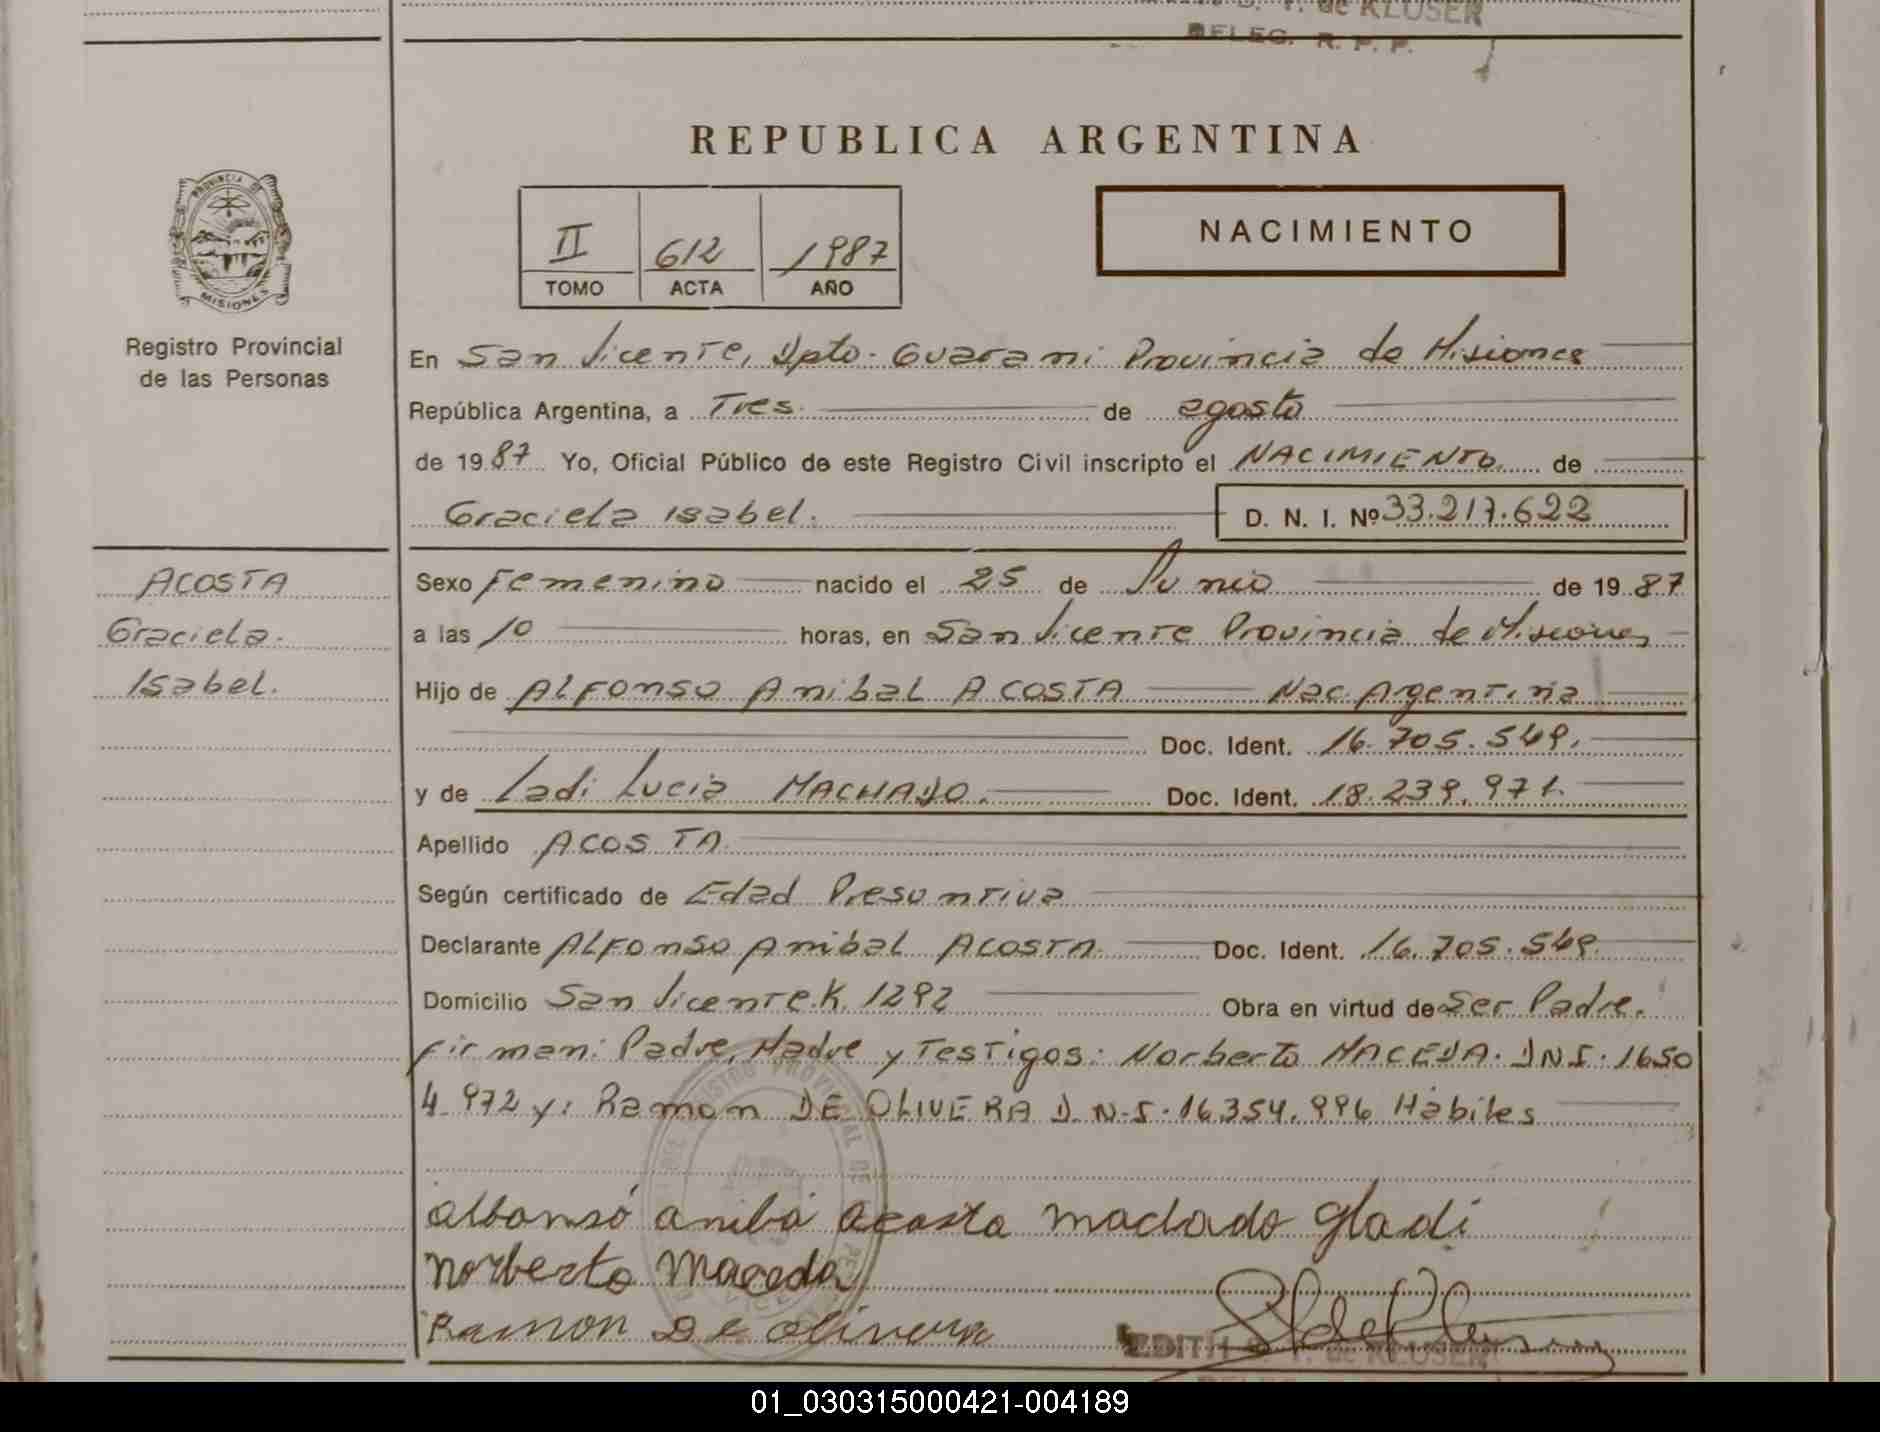 de KLUSER
DELEG. R. P. P.
REPUBLICA ARGENTINA
PROVINCIA DE
MISIONES
Registro Provincial
de las Personas
II 612 1987
TOMO ACTA AÑO
NACIMIENTO
En San Vicente, Dpto. Guarani Provincia de Misiones
República Argentina, a Tres. de agosto
de 1987 Yo, Oficial Público de este Registro Civil inscripto el NACIMIENTO de
Graciela Isabel. D. N. I. Nº 33.217.622
ACOSTA
Graciela.
Isabel.
Sexo Femenino nacido el 25 de Junio de 1987
a las 10 horas, en San Vicente Provincia de Misiones
Hijo de ALFONSO Anibal ACOSTA Nac. Argentina
Doc. Ident. 16.705.549.
y de Ladi Lucia MACHADO. Doc. Ident. 18.239.971.
Apellido ACOSTA
Según certificado de Edad Presuntiva
Declarante ALFONSO Anibal ACOSTA. Doc. Ident. 16.705.549.
Domicilio San Vicente K. 1292 Obra en virtud de Ser Padre.
Firman: Padre, Madre y Testigos: Norberto MACEDA. DNI. 1650
4.972 y: Ramon DE OLIVERA D.N.I. 16.354.996 Habiles
Alfonso aniba acosta machado gladi
Norberto Maceda
Ramon De Olivera
EDITH S. T. de KLUSER
01_030315000421-004189